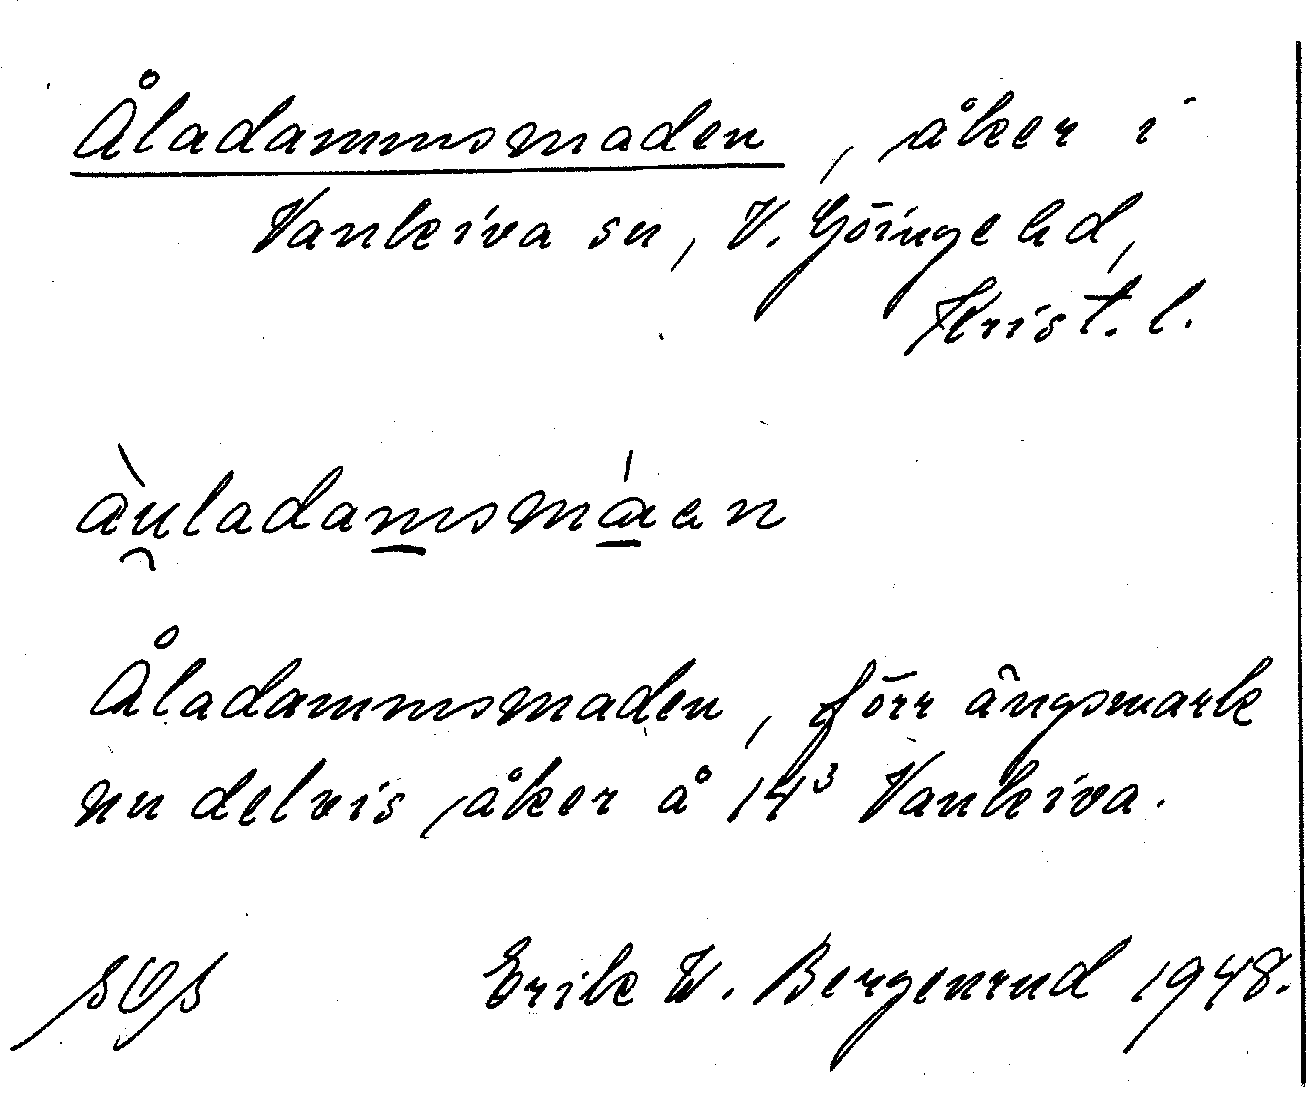 Åladammsmaden, åker i
Vankiva sn, V. Göinge hd,
Krist. l.
àu̯ladam̲smá̲en
Åladammsmaden, förr ängsmark
nu delvis åker å 14³ Vankiva.
Erik W. Bergenrud 1948.